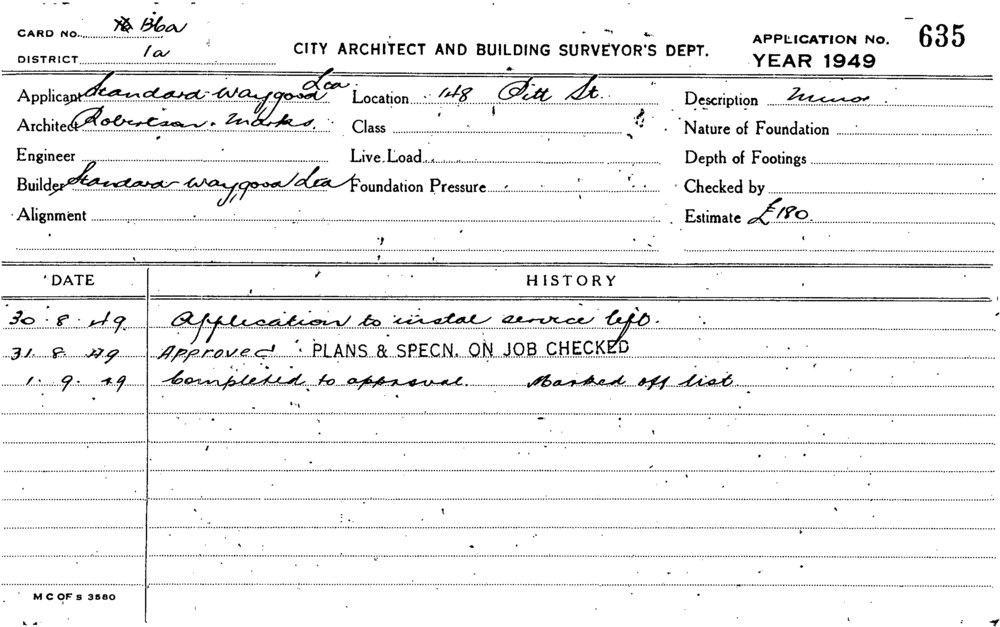 CARD No. B6a
DISTRICT 1a
CITY ARCHITECT AND BUILDING SURVEYOR'S DEPT.
APPLICATION No. 635
YEAR 1949
Applicant Standard-Waygood Ltd Location 148 Pitt St. Description Minor
Architect Robertson. Marks. Class Nature of Foundation
Engineer Live Load Depth of Footings
Builder Standard-Waygood Ltd Foundation Pressure Checked by
Alignment Estimate £180.
DATE HISTORY
30.8.49 Application to instal service lift.
31.8.49 Approved PLANS & SPECN. ON JOB CHECKED
1.9.49 Completed to approval. Marked off list
M C OF S 3580